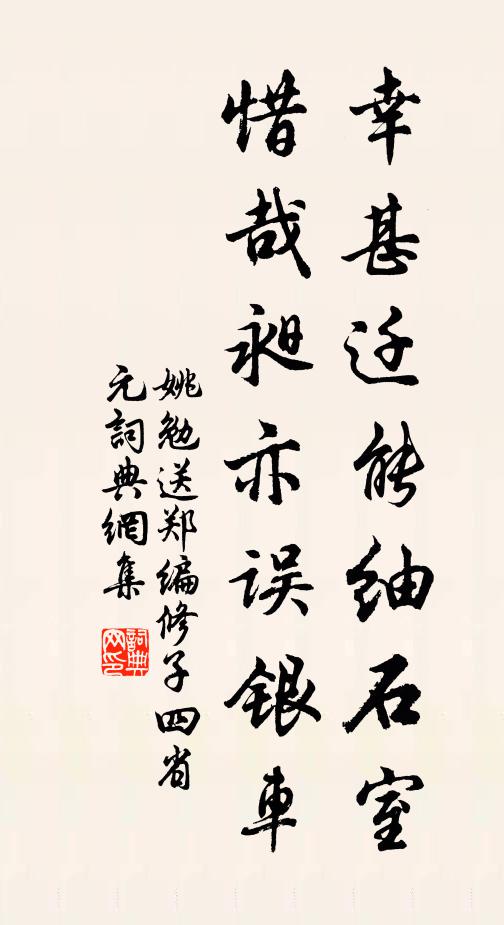 幸甚迁能紬石室
惜哉昶亦误银車
姚勉送郑编修子四省
元詞典網集
詞典网印